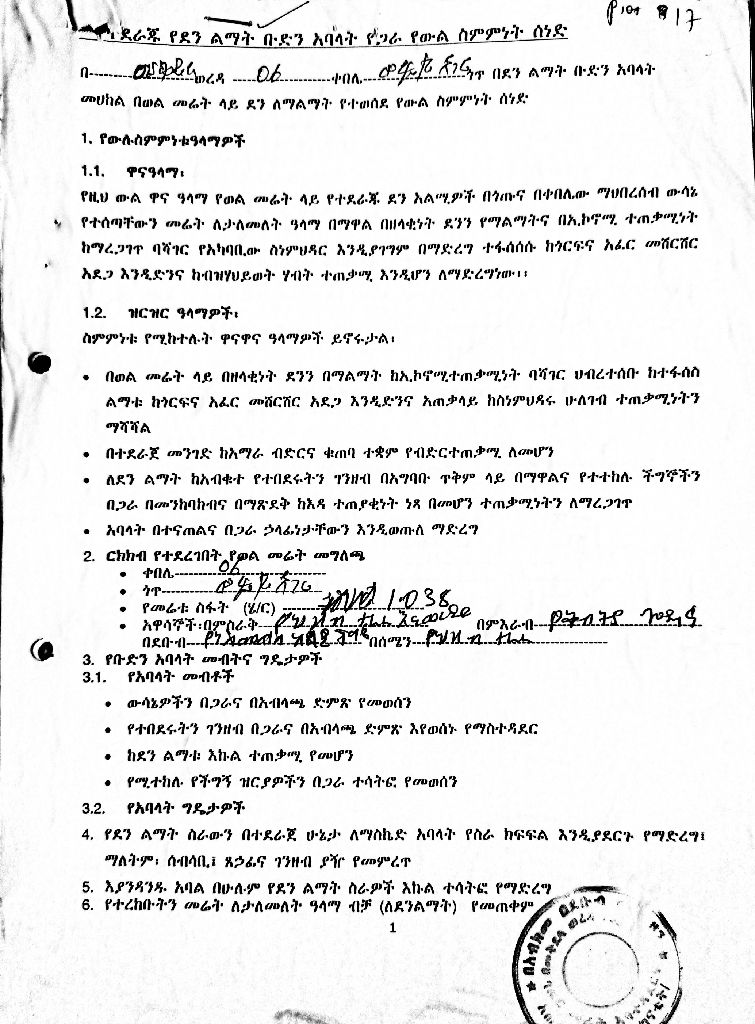 የደን ልማት ቡድን አባላት የጋራ የውል ስምምነት ሰነድ
በ---- ወረዳ ---- 06 ----ቀበሌ ---- ጎጥ በደን ልማት ቡድን አባላት
መሀከል በወል መሬት ላይ ደን ለማልማት የተወሰደ የውል ስምምነት ሰነድ
1. የውሉስምምነቱዓላማዎች
1.1. ዋናዓላማ፡
የዚህ ውል ዋና ዓላማ የወል መሬት ላይ የተደራጁ ደን አልሚዎች በጎጡና በቀበሌው ማህበረሰብ ውሳኔ
የተሰጣቸውን መሬት ለታለመለት ዓላማ በማዋል በዘላቂነት ደንን የማልማትና በኢኮኖሚ ተጠቃሚነት
ከማረጋገጥ ባሻገር የአካባቢው ስነምህዳር እንዲያገግም በማድረግ ተፋሰሱ ከጎርፍና አፈር መሸርሸር
አደጋ እንዲድንና ከብዝሃህይወት ሃብት ተጠቃሚ እንዲሆን ለማድረግነው፡፡
1.2. ዝርዝር ዓላማዎች፡
ስምምነቱ የሚከተሉት ዋናዋና ዓላማዎች ይኖሩታል፡
• በወል መሬት ላይ በዘላቂነት ደንን በማልማት ከኢኮኖሚተጠቃሚነት ባሻገር ህብረተሰቡ ከተፋሰስ
ልማቱ ከጎርፍና አፈር መሸርሸር አደጋ እንዲድንና አጠቃላይ ከስነምህዳሩ ሁለገብ ተጠቃሚነትን
ማሻሻል
• በተደራጀ መንገድ ከአማራ ብድርና ቁጠባ ተቋም የብድርተጠቃሚ ለመሆን
• ለደን ልማት ከአብቁተ የተበደሩትን ገንዘብ በአግባቡ ጥቅም ላይ በማዋልና የተተከሉ ችግኞችን
በጋራ በመንከባከብና በማጽደቅ ከእዳ ተጠያቂነት ነጻ በመሆን ተጠቃሚነትን ለማረጋገጥ
• አባላት በተናጠልና በጋራ ኃላፊነታቸውን እንዲወጡለ ማድረግ
2. ርክክብ የተደረገበት የወል መሬት መግለጫ
• ቀበሌ---- 06 ----
• ጎጥ----
• የመሬቱ ስፋት (ሄ/ር) ---- 1.038
• አዋሳኞች፡በምስራቅ ---- በምእራብ----
በደቡብ---- በሰሜን----
3. የቡድን አባላት መብትና ግዴታዎች
3.1. የአባላት መብቶች
• ውሳኔዎችን በጋራና በአብላጫ ድምጽ የመወሰን
• የተበደሩትን ገንዘብ በጋራና በአብላጫ ድምጽ እየወሰኑ የማስተዳደር
• ከደን ልማቱ እኩል ተጠቃሚ የመሆን
• የሚተከሉ የችግኝ ዝርያዎችን በጋራ ተሳትፎ የመወሰን
3.2. የአባላት ግዴታዎች
4. የደን ልማት ስራውን በተደራጀ ሁኔታ ለማስኬድ አባላት የስራ ክፍፍል እንዲያደርጉ የማድረግ፤
ማለትም፡ ሰብሳቢ፤ ጸኃፊና ገንዘብ ያዥ የመምረጥ
5. እያንዳንዱ አባል በሁሉም የደን ልማት ስራዎች እኩል ተሳትፎ የማድረግ
6. የተረከቡትን መሬት ለታለመለት ዓላማ ብቻ (ለደንልማት) የመጠቀም
1